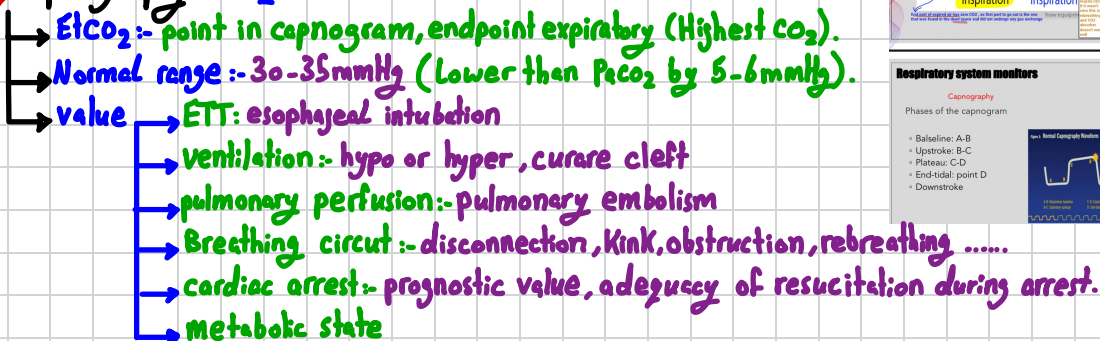 EtCO₂:- point in capnogram, endpoint expiratory (Highest CO₂).
Normal range :- 30-35mmHg (Lower than PaCO₂ by 5-6mmHg).
value
ETT: esophageal intubation
ventilation:- hypo or hyper, curare cleft
pulmonary perfusion:- pulmonary embolism
Breathing circut :- disconnection, Kink, obstruction, rebreathing ......
cardiac arrest:- prognostic value, adequacy of resucitation during arrest.
metabolic state
inspiration
Inspiration
End part of expired air has zero CO2, as first part to go out is the one
that was found in the dead space and did not undergo any gas exchange
Respiratory system monitors
Capnography
Phases of the capnogram
Balseline: A-B
Upstroke: B-C
Plateau: C-D
End-tidal: point D
Downstroke
Normal Capnography Waveform